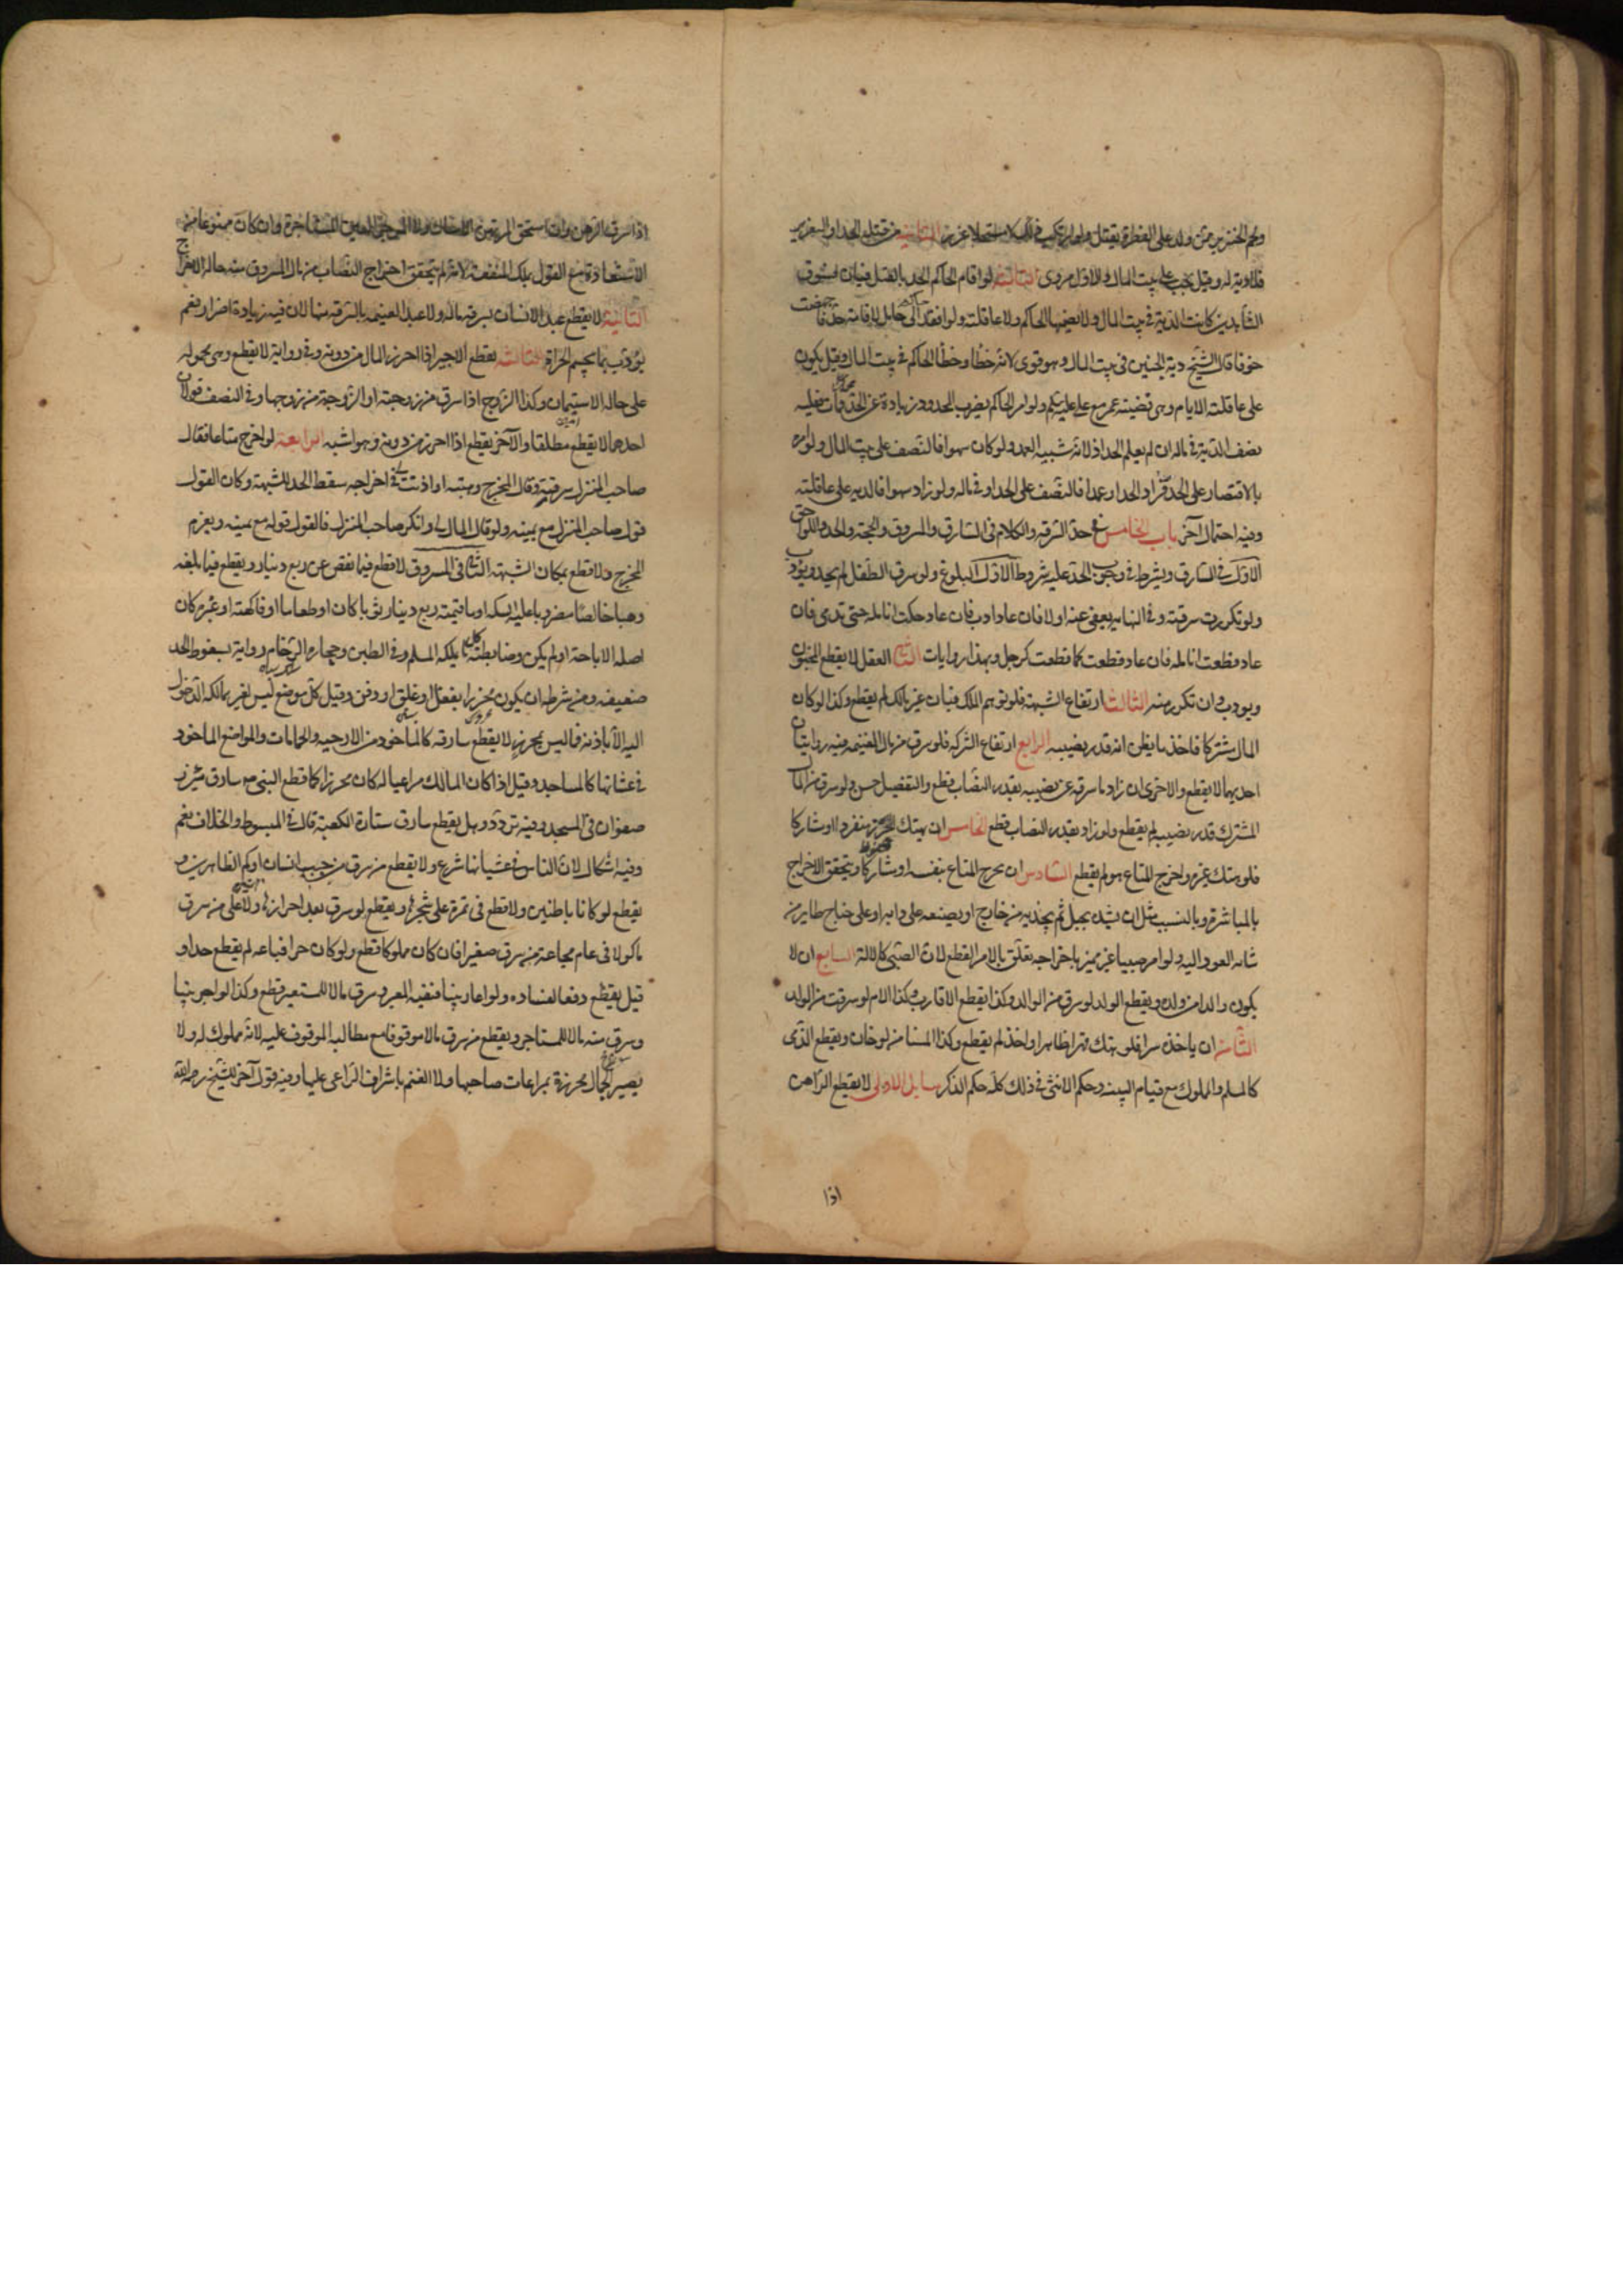 ولحم الخنزير ممن ولد على الفطرة يقتل ولو ارتكب ذلك لا مستحلا عزر الثانية من قتله الحد او التعزير
فلا دية له وقيل يجب على بيت المال والاول مروى الثالثة لو اقام الحاكم الحد بالقتل فبان فسوق
الشاهدين كانت الدية في بيت المال ولا يضمنها الحاكم ولا عاقلته ولو انفذ الى حامل لاقامة حد فاجهضت
خوفا قال الشيخ دية الجنين في بيت المال وهو قوى لانه خطأ وخطأ الحاكم في بيت المال وقيل يكون
على عاقلة الامام وهى قضية عمر مع على عليه السلم ولو امر الحاكم بضرب المحدود زيادة عن الحد فمات فعليه
نصف الدية في ماله ان لم يعلم الحداد لانه شبيه العمد ولو كان سهوا فالنصف على بيت المال ولو امر
بالاقتصار على الحد فزاد الحداد عمدا فالنصف على الحداد في ماله ولو زاد سهوا فالدية على عاقلته
وفيه احتمال آخر باب الخامس في حد السرقه والكلام في السارق والمسروق والحجة والحد واللواحق
الاول في السارق ويشترط في وجوب الحد عليه شروط الاول البلوغ ولو سرق الطفل لم يحد ويؤدب
ولو تكررت سرقته وفي النهايه يعفى عنه اولا فان عاد ادب فان عاد حكت انامله حتى تدمى فان
عاد قطعت انامله فان عاد قطعت كما قطعت كرجل وبهذا روايات الثاني العقل لا يقطع المجنون
ويودب وان تكرر منه الثالث ارتفاع الشبهة فلو توهم الملك فبان غير مالك لم يقطع وكذا لو كان
المال مشتركا فاخذ ما يظن انه قدر نصيبه الرابع ارتفاع الشركه فلو سرق من مال الغنيمه فيه روايتان
احديهما لا يقطع والاخرى ان زاد ما سرقه عن نصيبه بقدر النصاب قطع والتفصيل حسن ولو سرق من المال
المشترك قدر نصيبه لم يقطع ولو زاد بقدر النصاب قطع الخامس ان يهتك الحرز منفردا او مشاركا
فلو هتك غيره واخرج المتاع هو لم يقطع السادس ان يخرج المتاع بنفسه او مشاركا ويتحقق الاخراج
بالمباشرة وبالتسبب مثل ان يشده بحبل ثم يجذبه من خارج او يضعه على دابه او على جناح طاير من
شانه العود اليه ولو امر صبيا غير مميز باخراجه تعلق بالامر القطع لان الصبى كالالة السابع ان لا
يكون والدا من ولده ويقطع الولد لو سرق من الوالد وكذا يقطع الاقارب وكذا الام لو سرقت من الولد
الثامن ان ياخذه سرا فلو هتك قهرا ظاهرا واخذ لم يقطع وكذا المستامن لو خان ويقطع الذمى
كالمسلم والمملوك مع قيام البينه وحكم الانثى في ذلك كله حكم الذكر مسايل الاولى لا يقطع الراهن
اذا
اذا سرق الرهن وان استحق المرتهن الامساك ولا الموجر العين المستاجرة وان كان ممنوعا من
الاستعادة مع القول بملك المنفعة لانه لم يتحقق اخراج النصاب من مال المسروق منه حالة الاخراج
الثانية لا يقطع عبد الانسان بسرقه ماله ولا عبد الغنيمه بالسرقه منها لان فيه زيادة اضرار نعم
يؤدب بما يحسم الجراة الثالثة يقطع الاجير اذا احرز المال من دونه وفي رواية لا يقطع وهى محموله
على حالة الاستيمان وكذا الزوج اذا سرق من زوجته او الزوجة من زوجها وفي الضيف قولان
احدهما لا يقطع مطلقا والآخر يقطع اذا احرز من دونه وهو اشبه الرابعة لو اخرج متاعا فقال
صاحب المنزل سرقته وقال المخرج وهبته او اذنت لى في اخراجه سقط الحد للشبهة وكان القول
قول صاحب المنزل مع يمينه ولو قال المال لى وانكر صاحب المنزل فالقول قوله مع يمينه ويغرم
المخرج ولا قطع بمكان الشبهة الثاني في المسروق لا قطع فيما نقص عن ربع دينار ويقطع فيما بلغه
ذهبا خالصا مضروبا عليه السكه او ما قيمته ربع دينار ثوبا كان او طعاما او فاكهة او غيره كان
اصله الاباحة او لم يكن وضابطه كلما يملكه المسلم وفي الطين وحجارة الرخام رواية بسقوط الحد
ضعيفه ومن شرطه ان يكون محرزا بقفل او غلق او دفن وقيل كل موضع ليس لغير مالكه الدخول
اليه الا باذنه فما ليس بمحرز لا يقطع سارقه كالماخوذ من الارحيه والحمامات والمواضع الماذون
في غشيانها كالمساجد وقيل اذا كان المالك مراعيا له كان محرزا كما قطع النبى ص سارق مئزر
صفوان في المسجد وفيه تردد وهل يقطع سارق ستارة الكعبة قال في المبسوط والخلاف نعم
وفيه اشكال لان الناس في غشيانها شرع ولا يقطع من سرق من جيب انسان او كمه الظاهرين و
يقطع لو كانا باطنين ولا قطع في ثمرة على شجرها ويقطع لو سرق بعد احرازها ولا على من سرق
ماكولا في عام مجاعة ومن سرق صغيرا فان كان مملوكا قطع ولو كان حرا فباعه لم يقطع حدا و
قيل يقطع دفعا لفساده ولو اعار بيتا فنقبه المعير وسرق مالا للمستعير قطع وكذا لو اجر بيتا
وسرق منه مالا للمستاجر ويقطع من سرق مالا موقوفا مع مطالبة الموقوف عليه لانه مملوك له ولا
يصير الجمال محرزة بمراعات صاحبها ولا الغنم باشراف الراعى عليها وفيه قول آخر للشيخ رحمه الله